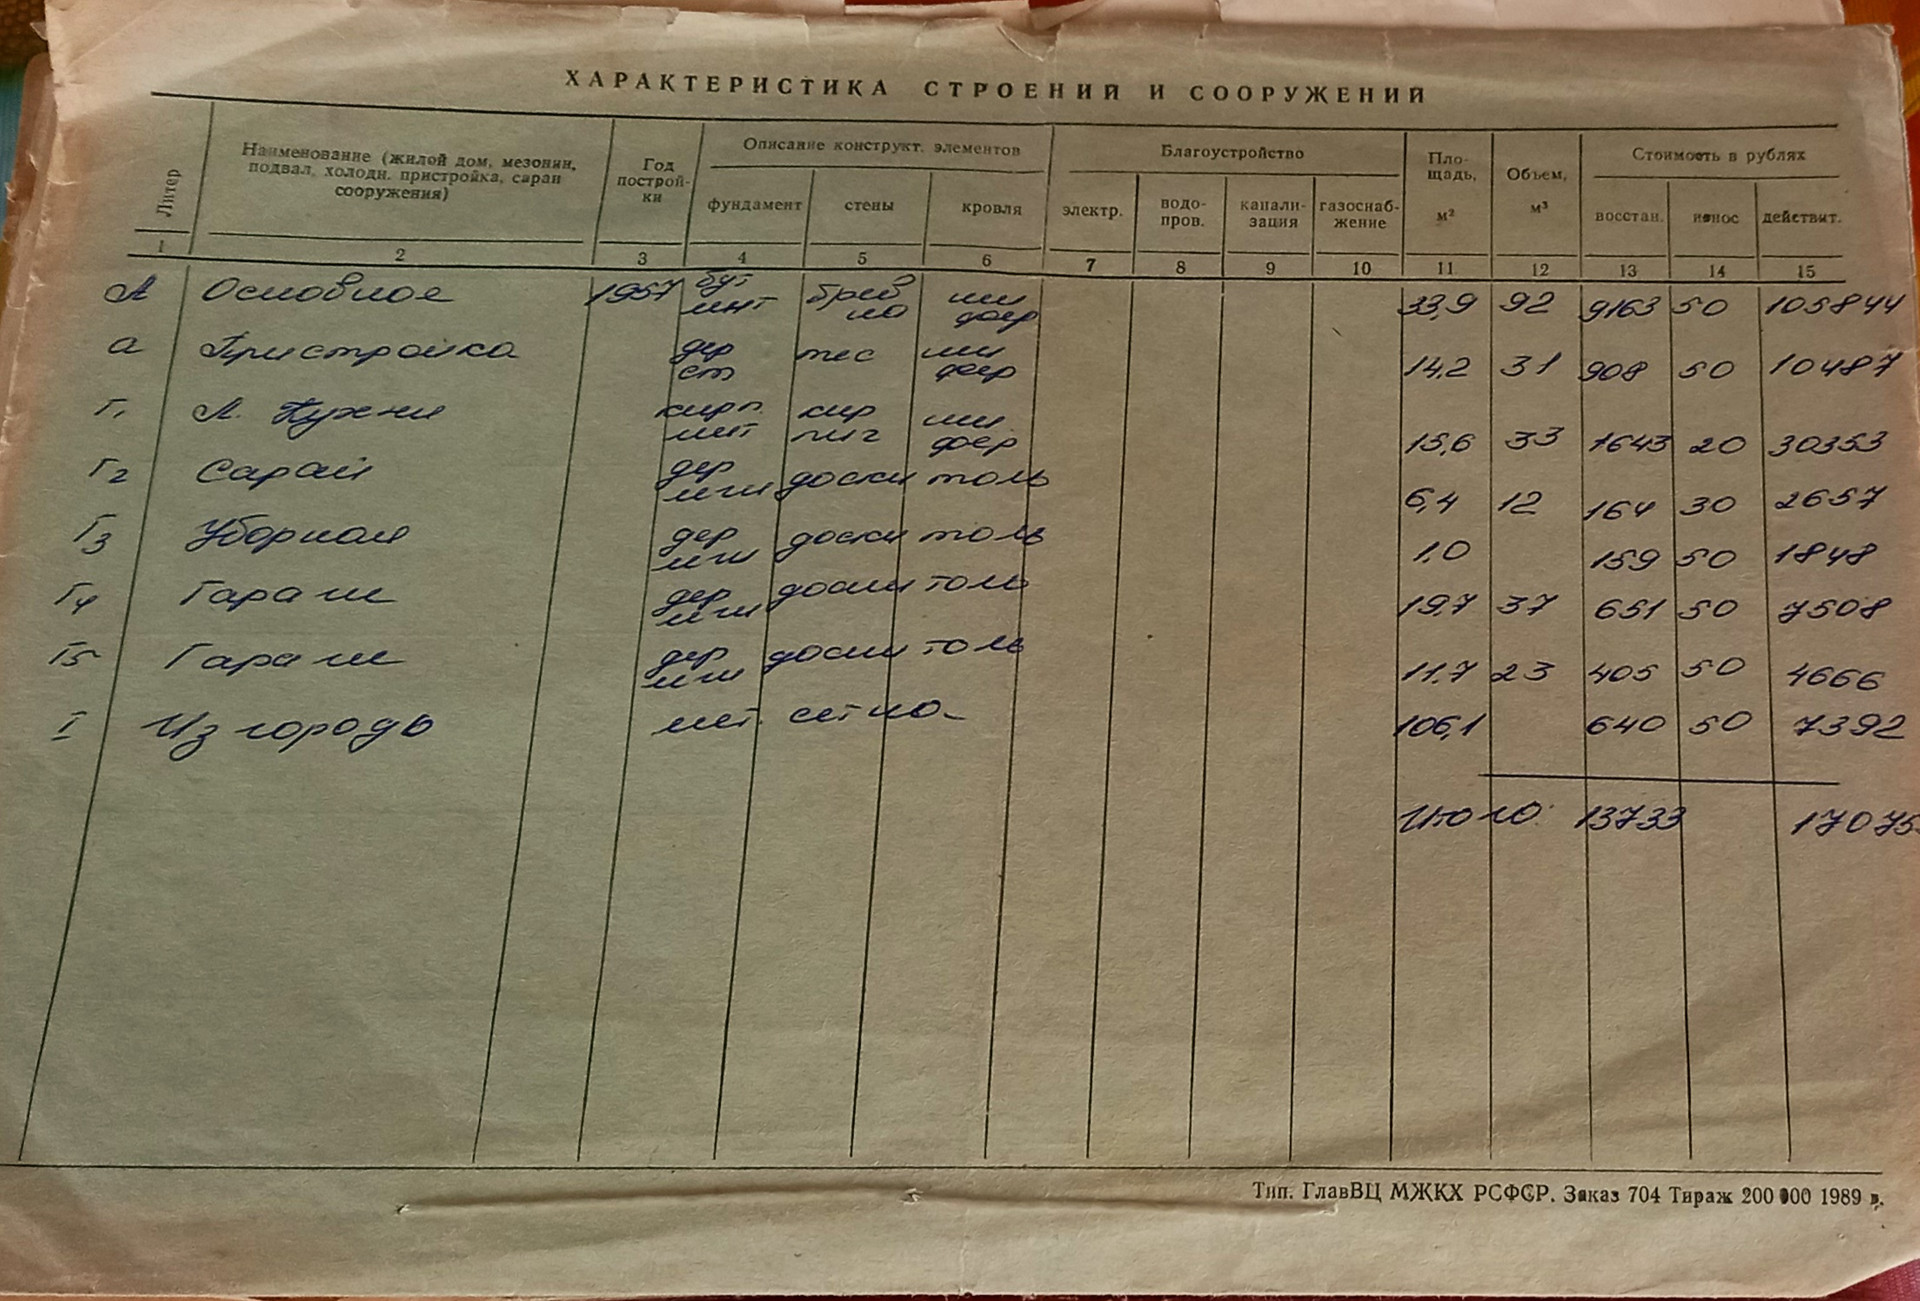 ХАРАКТЕРИСТИКА СТРОЕНИЙ И СООРУЖЕНИЙ
Литер
Наименование (жилой дом, мезонин, подвал, холодн. пристройка, сараи сооружения)
Год построй-ки
Описание конструкт. элементов
Благоустройство
Пло-щадь, м²
Объем, м³
Стоимость в рублях
фундамент стены кровля электр. водо-пров. канали-зация газоснаб-жение восстан. износ действит.
1 2 3 4 5 6 7 8 9 10 11 12 13 14 15
А Основное 1957 бут брев ши 33,9 92 9163 50 105844
но фер
а Пристройка дер тес ши 14,2 31 908 50 10487
ст фер
Г1 Л. Кухни кирп. кир ши 15,6 33 1643 20 30353
пич фер
Г2 Сарай дер доски толь 6,4 12 164 30 2657
Г3 Уборная дер доски толь 1,0 159 50 1848
Г4 Гараж дер доски толь 19,7 37 651 50 7508
Г5 Гараж дер доски толь 11,7 23 405 50 4666
I Изгородь мет. сетка 106,1 640 50 7392
Итого: 13733 17075
Тип. ГлавВЦ МЖКХ РСФСР. Заказ 704 Тираж 200 000 1989 г.